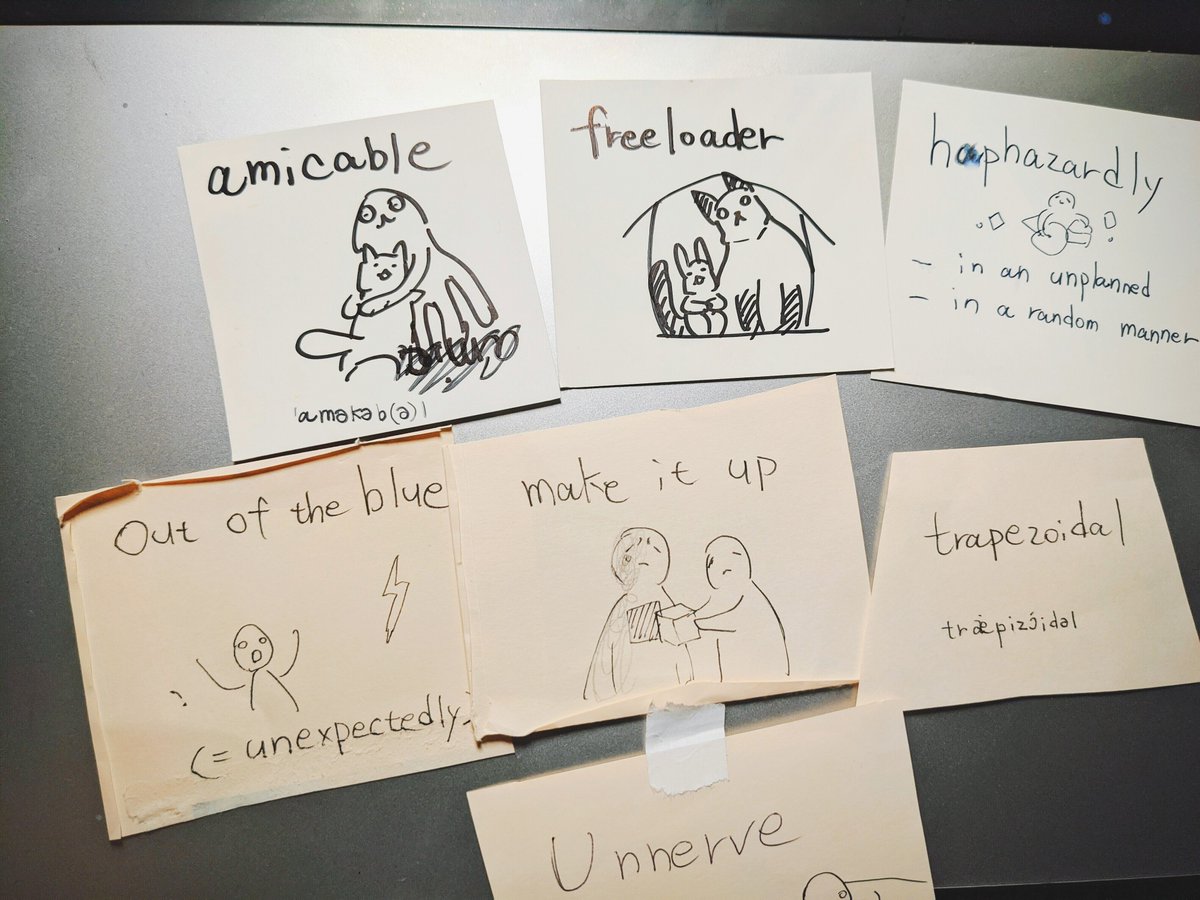 amicable
ˈaməkəb(ə)l
freeloader
haphazardly
- in an unplanned
- in a random manner
Out of the blue
(= unexpectedly.
make it up
trapezoidal
træ̀pizɔ́idəl
Unnerve